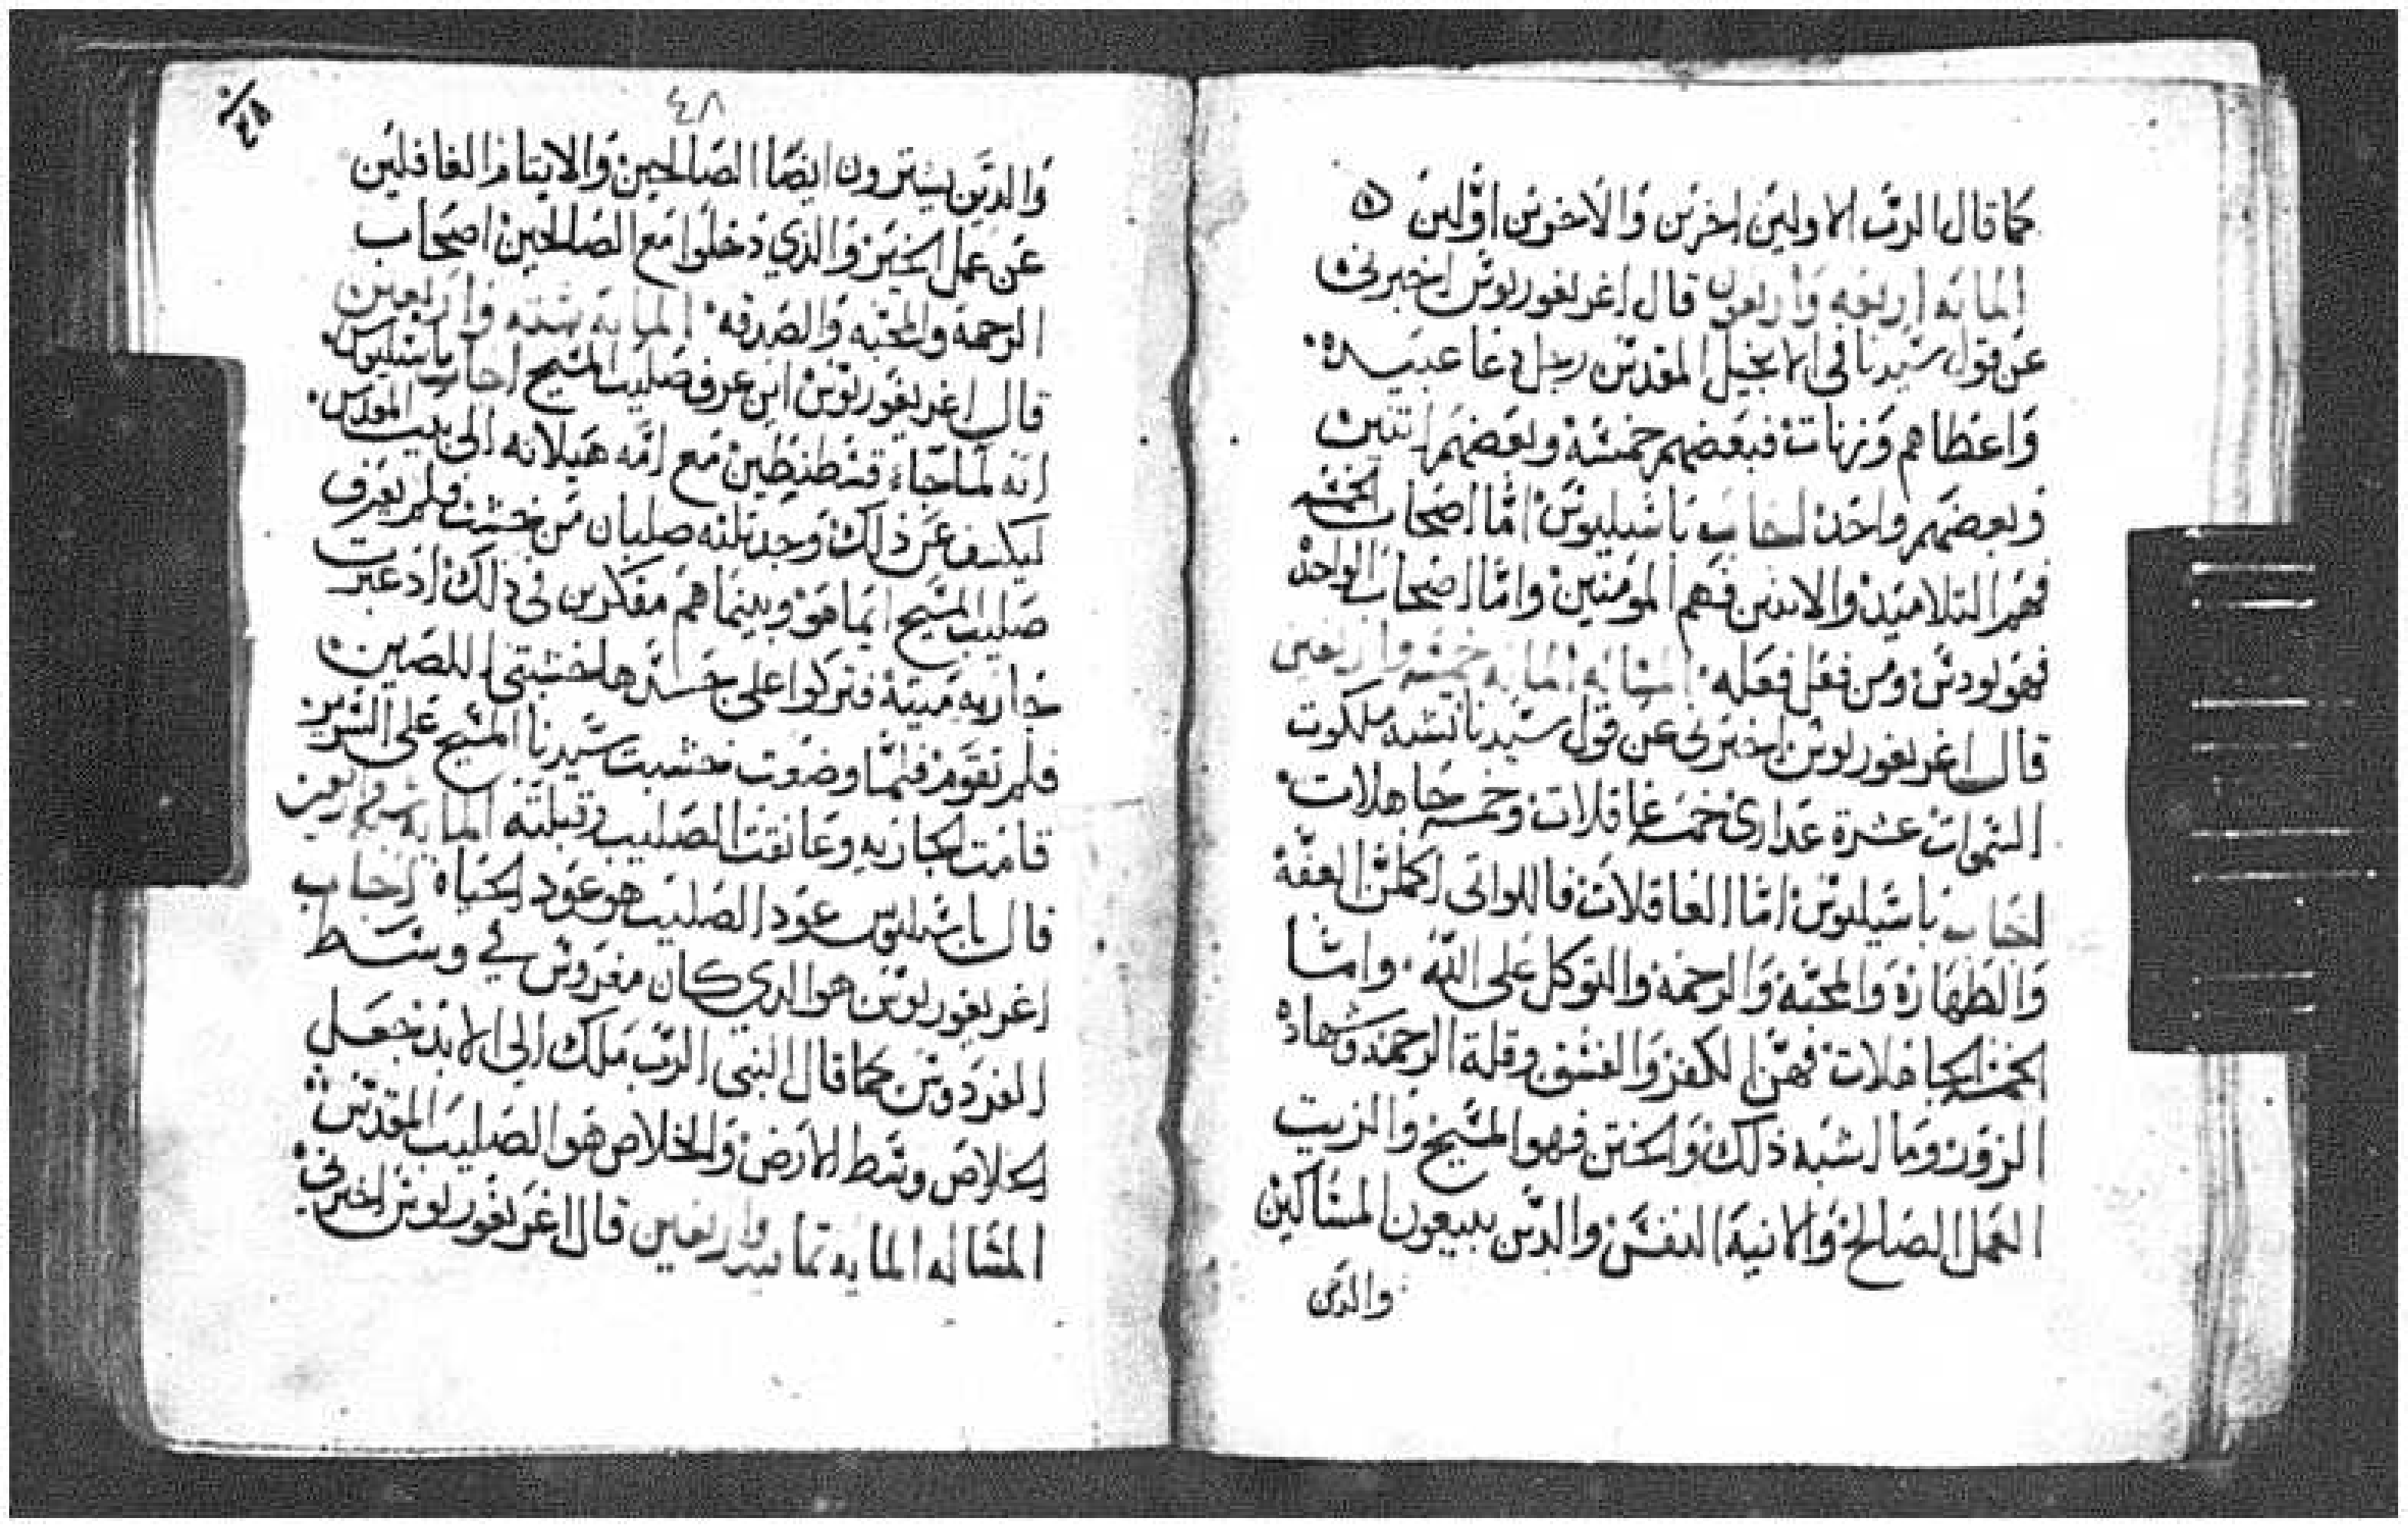 كما قال الرب الاولين اخرين والاخرين اولين
المايه اربعه واربعون قال اغريغوريوس اخبرني
عن قول سيدنا في الانجيل المقدس رجل دعا عبيده
واعطاهم وزنات فبعضهم خمسة وبعضهم اتنين
وبعضهم واحد اجاب باسيليوس اما اصحاب الخمسه
فهم التلاميد والاتنين فهم المومنين واما اصحاب الواحد
فهو يودس ومن فعل فعله المساله المايه خمسه واربعين
قال اغريغوريوس اخبرني عن قول سيدنا تشبه ملكوت
السموات عشرة عدارى خمسه عاقلات وخمسه جاهلات
اجاب باسيليوس اما العاقلات فاللواتى اكملن العفة
والطهارة والمحبه والرحمة والتوكل على الله واما
الخمسه الجاهلات فهن الكفر والفسق وقلة الرحمه وشهادة
الزور وما اشبه ذلك والختن فهو المسيح والزيت
العمل الصالح والانية النفس والدين يبيعون المساكين
والدين
٤٨
والدين يشترون ايضا الصالحين والايتام الغافلين
عن عمل الخير والذي دخلوا مع الصالحين اصحاب
الرحمه والمحبه والصدقه المايه سته واربعين
قال اغريغوريوس اين عرف صليب المسيح اجاب باسيليوس
انه لما جاء قسطنطين مع امه هيلانه الى بيت المقدس
ليكشف عن ذلك وجد تلته صلبان من خشب فلم يعرف
صليب المسيح ايما هو وبينما هم مفكرين في ذلك اذ عبرت
جاريه ميتة فتركوا على جسدها خشبتي اللصين
فلم تقوم فلما وضوت خشبت سيدنا المسيح على السرير
قامت الجاريه وعانقت الصليب وقبلته المايه سبعه واربعين
قال باسيليوس عود الصليب هو عود الحياة اجاب
اغريغوريوس هو الدي كان مغروس في وسط
الفردوس كما قال النبي الرب ملك الى الابد جعل
الخلاص وسط الارض والخلاص هو الصليب المقدس
المساله المايه تمانيه واربعين قال اغريغوريوس اخبرني